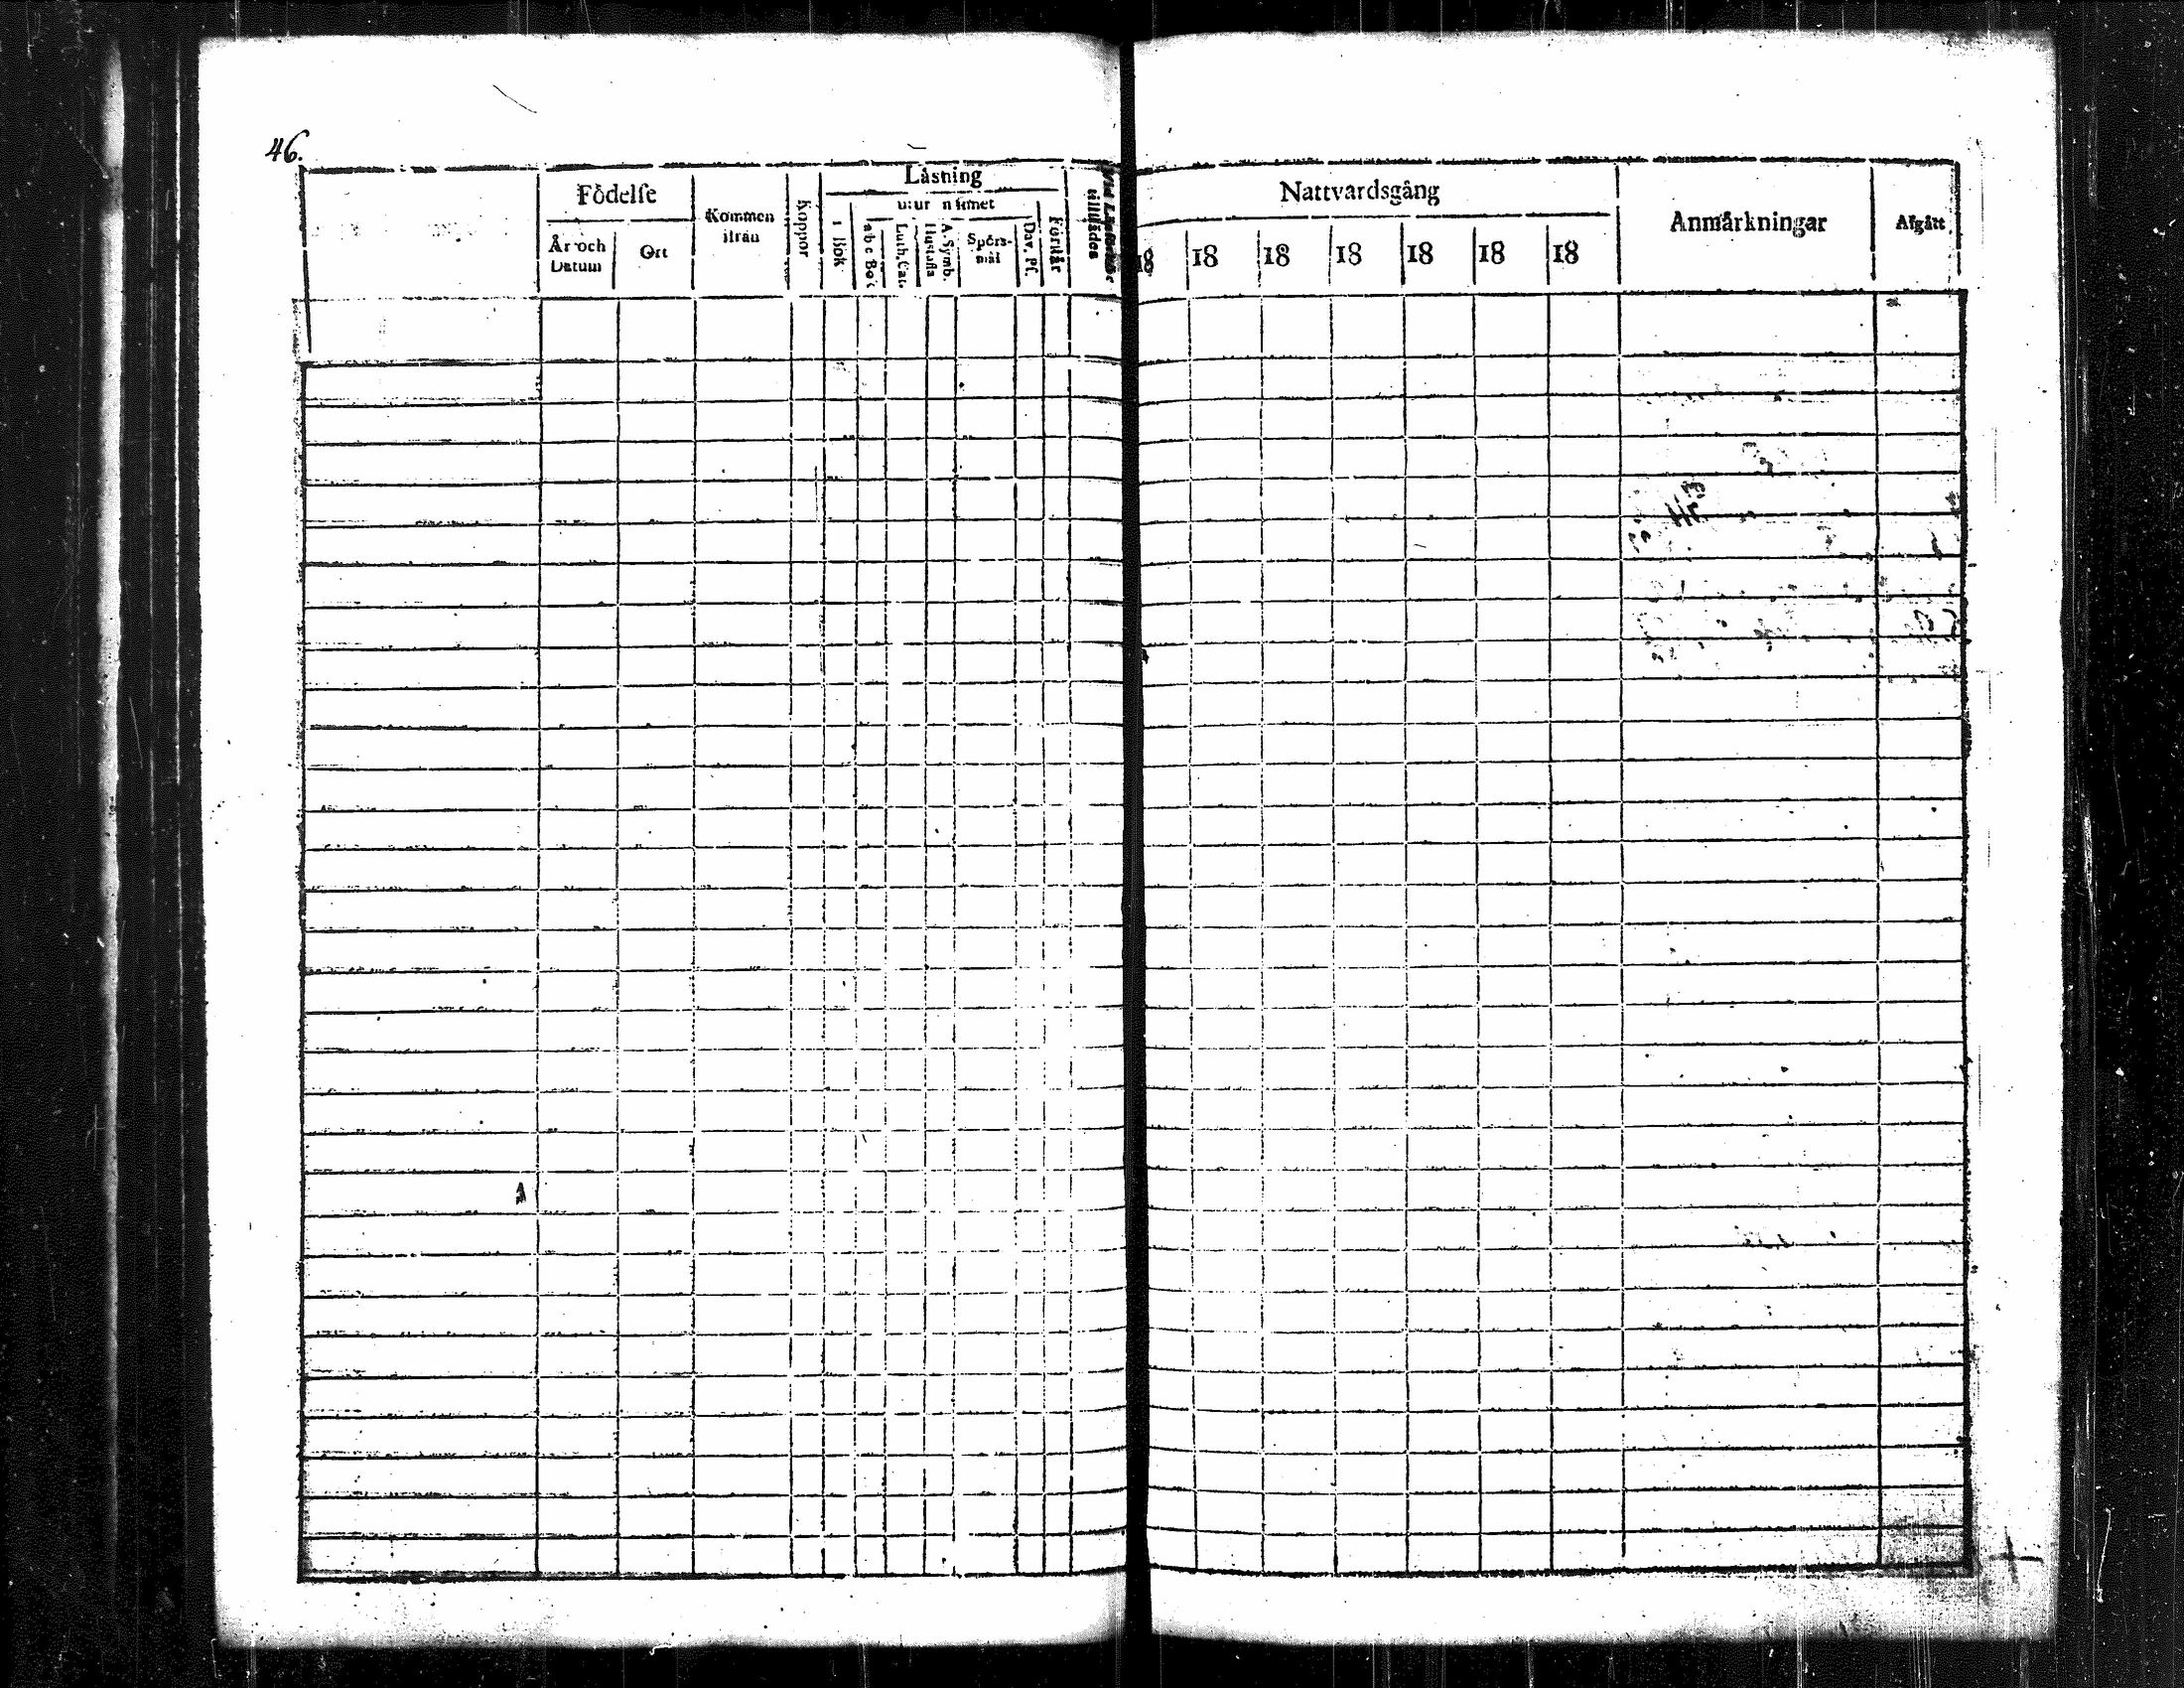 46.
Födelse
År och Datum
Ort
Kommen ifrån
Koppor
Läsning
i Bok
utur minnet
a b c Bok
Luth. Cat.
Hustafla
A. Symb.
Spörsmål
Dav. Ps.
Förstår
tillstädes
Nattvardsgång
18 18 18 18 18 18 18
Anmärkningar
Afgått